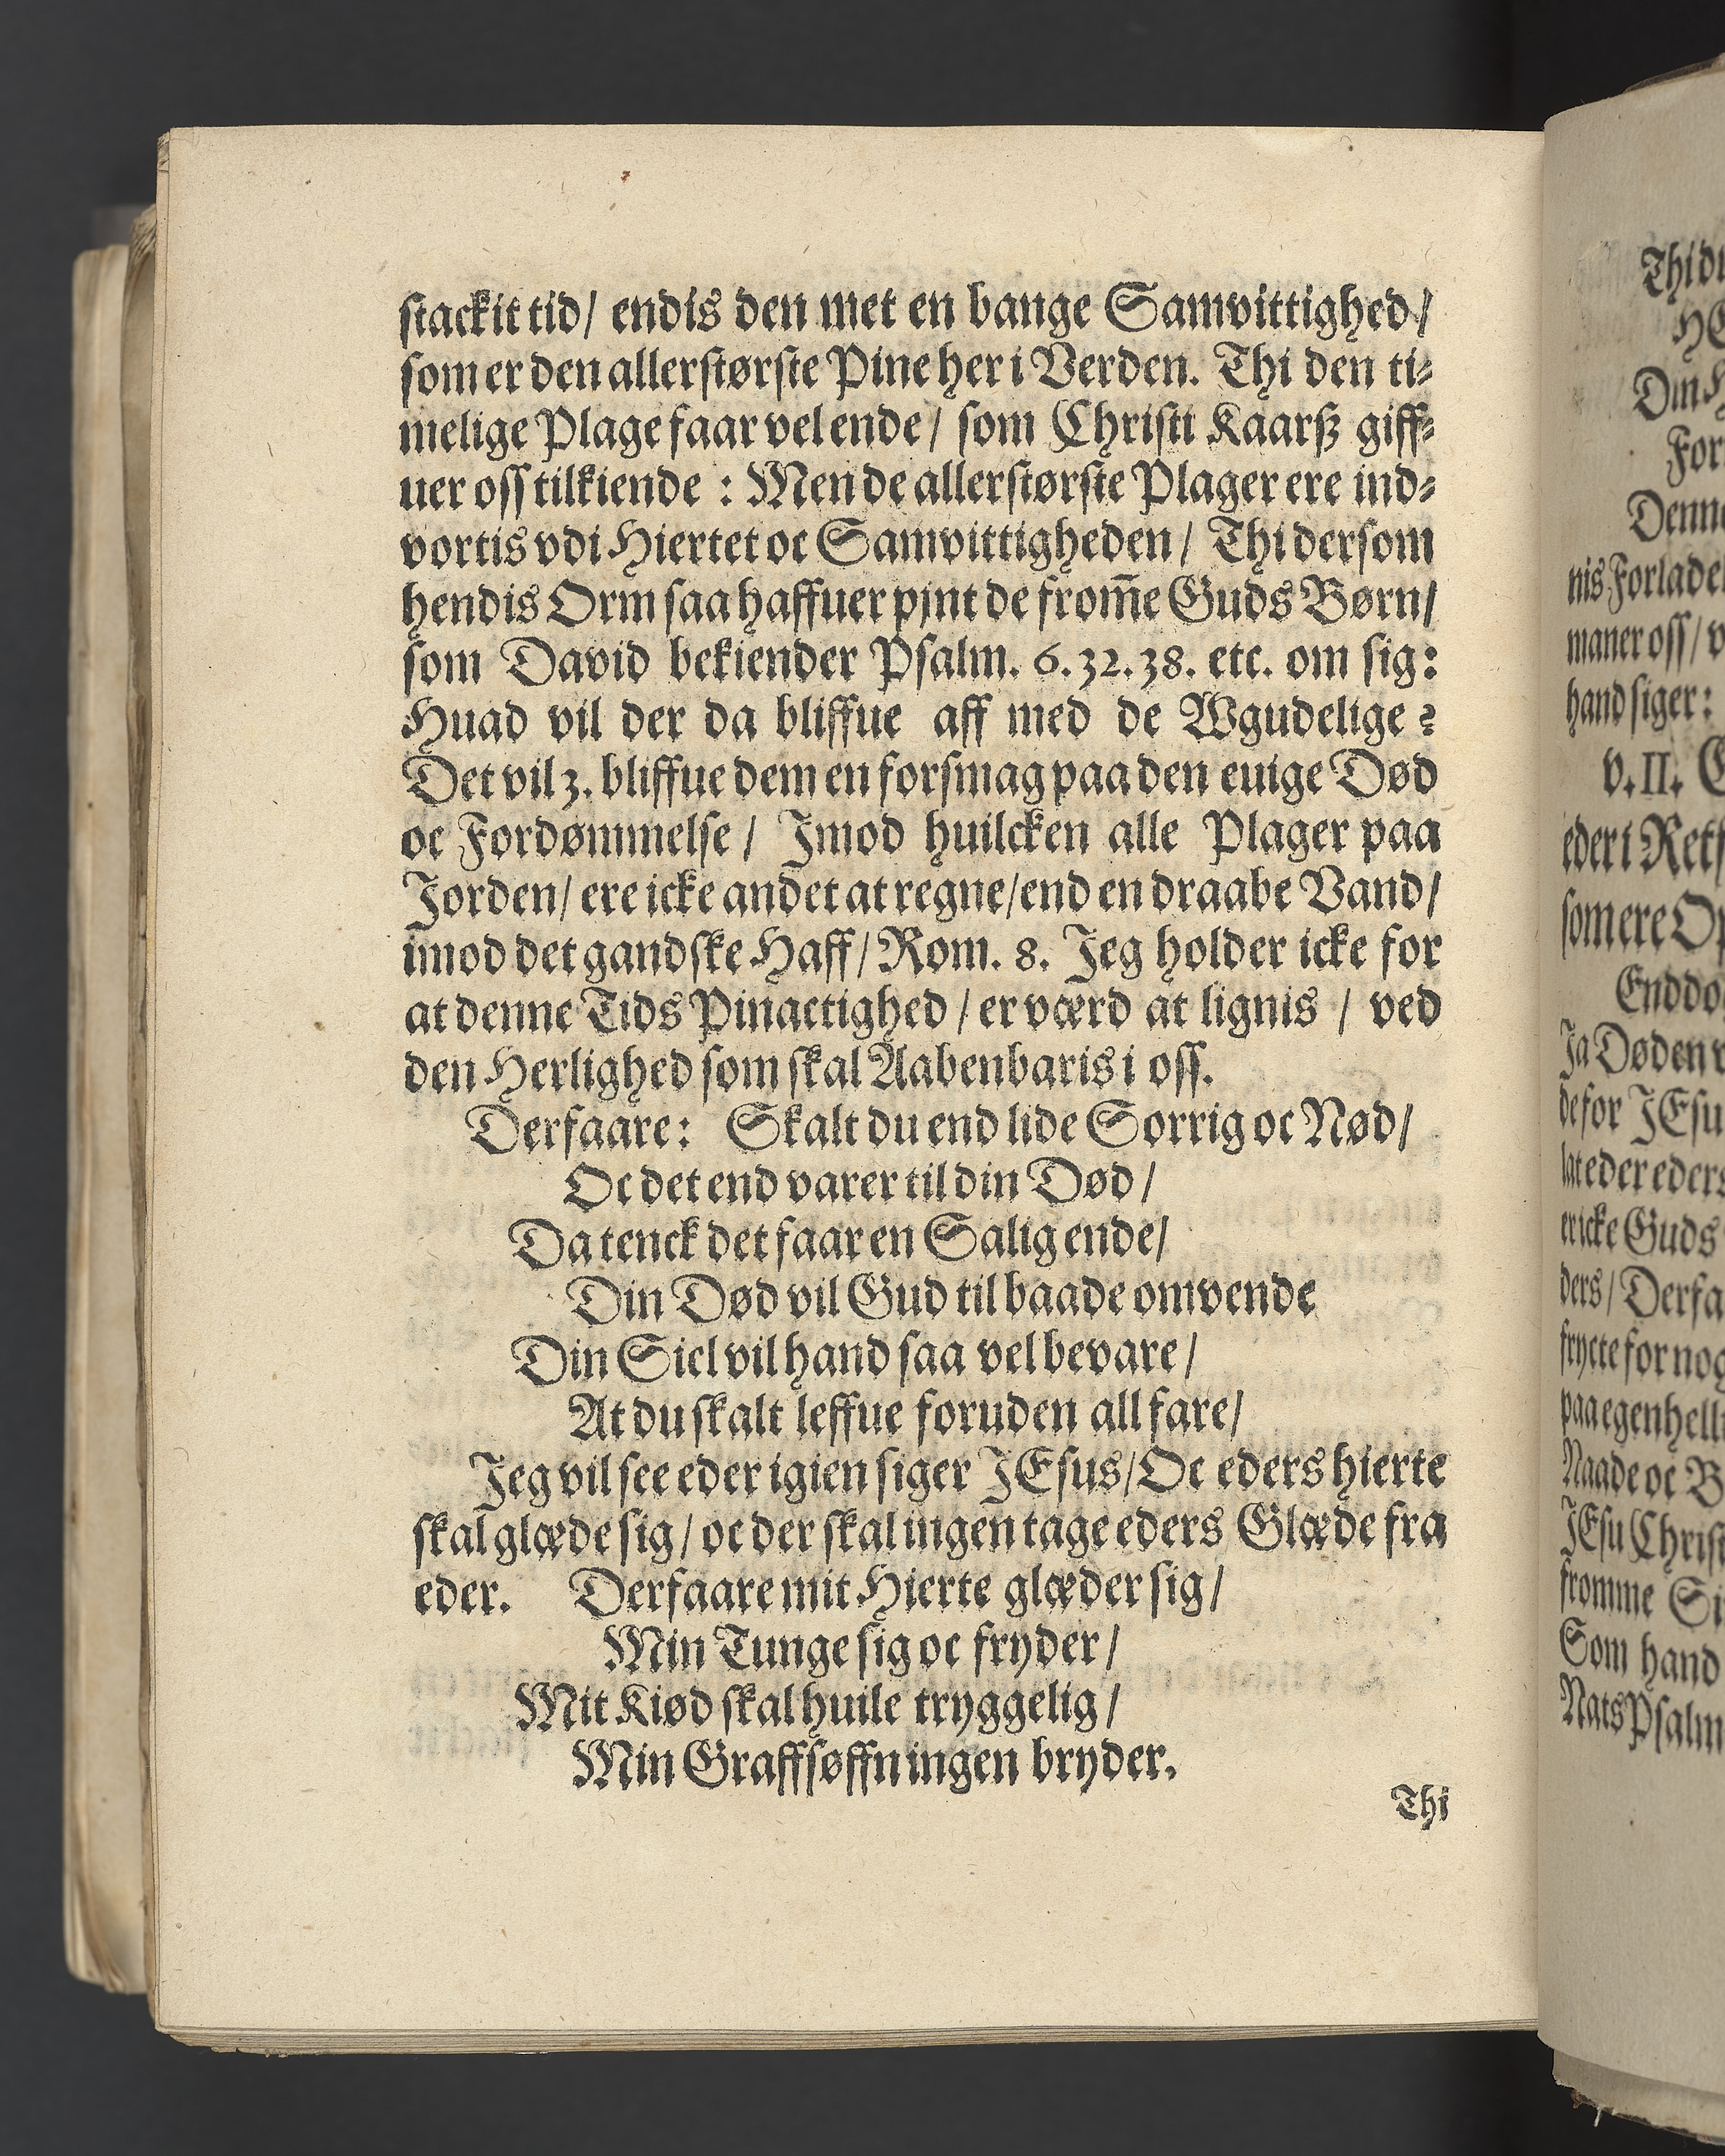 stackit tid/ endis den met en bange Samvittighed/
som er den allerstørste Pine her i Verden. Thi den ti-
melige Plage faar vel ende/ som Christi Kaarß giff-
uer oss tilkiende : Men de allerstørste Plager ere ind-
vortis vdi Hiertet oc Samvittigheden/ Thi dersom
hendis Orm saa haffuer pjnt de from̃e Guds Børn/
som David bekiender Psalm. 6. 32. 38. etc. om sig:
Huad vil der da bliffue aff med de Wgudelige ?
Det vil 3. bliffue dem en forsmag paa den euige Død
oc Fordømmelse/ Imod huilcken alle Plager paa
Jorden/ ere icke andet at regne/ end en draabe Vand/
imod det gandske Haff/ Rom. 8. Jeg holder icke for
at denne Tids Pinactighed/ er værd at lignis / ved
den Herlighed som skal Aabenbaris i oss.
Derfaare: Skalt du end lide Sorrig oc Nød/
Oc det end varer til din Død/
Da tenck det faar en Salig ende/
Din Død vil Gud til baade omvende
Din Siel vil hand saa vel bevare/
At du skalt leffue foruden all fare/
Jeg vil see eder igien siger JEsus/ Oc eders hierte
skal glæde sig/ oc der skal ingen tage eders Glæde fra
eder. Derfaare mit Hierte glæder sig/
Min Tunge sig oc fryder/
Mit Kiød skal huile tryggelig/
Min Graffsøffn ingen bryder.
Thi
Thi du
Din
Denne
nis Forladel
maner oss/
hand siger:
v. II.
eder i
som ere
Ja Døden
de for JEsu
lat eder eders
er icke Guds
ders/ Derfa
frycte for nog
paa egen
Naade oc
JEsu Christ
fromme
Som hand
Nats Psalm